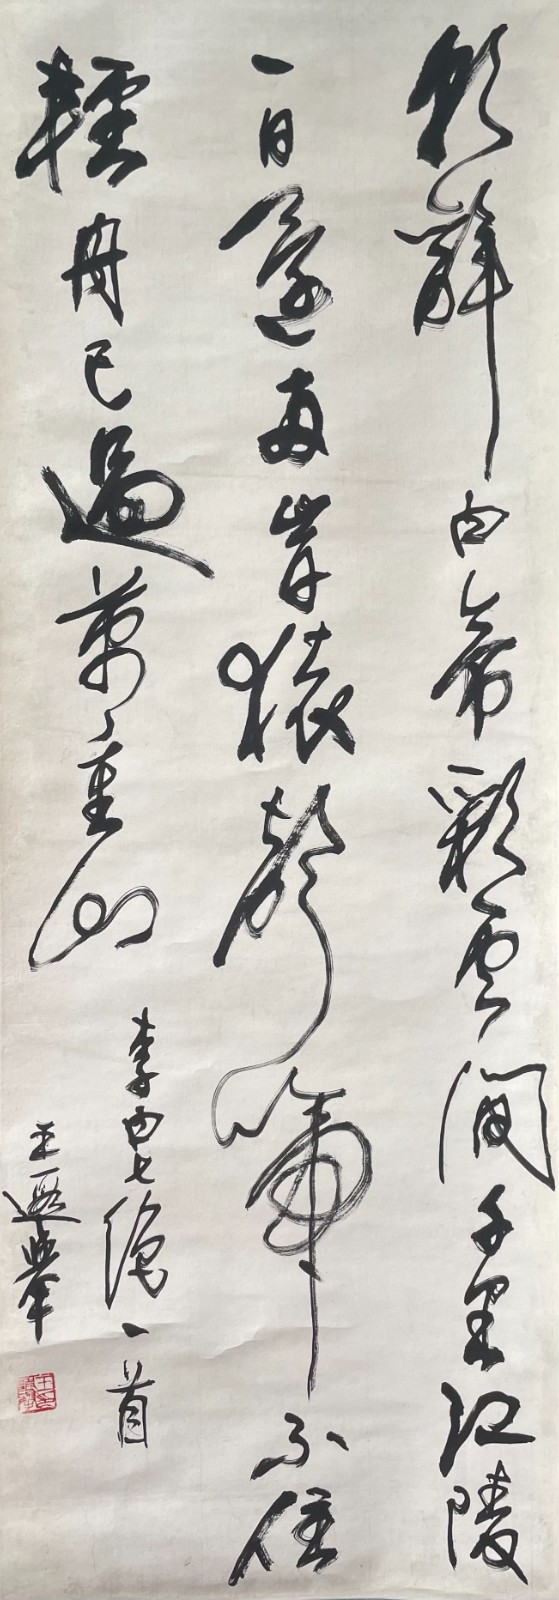 朝辞白帝彩雲间千里江陵
一日還两岸猿聲啼不住
輕舟已過萬重山
李白七绝一首
王遐舉